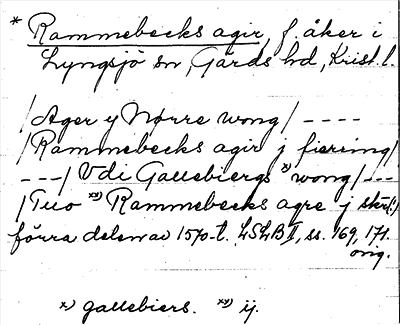 * Rammebecks agir, f. åker i
Lyngsjö sn, Gärds hd, Krist. l.
/Ager y Nørre wong/ ----
/Rammebecks agir j fierring/
---/ Vdi Gallebiergs x) wong/---
/Tuo xx) Rammebecks agre j skrl:/
förra delen av 1570-t. LSLB II, ss. 169, 171.
orig.
x) gallebiers. xx) ij.